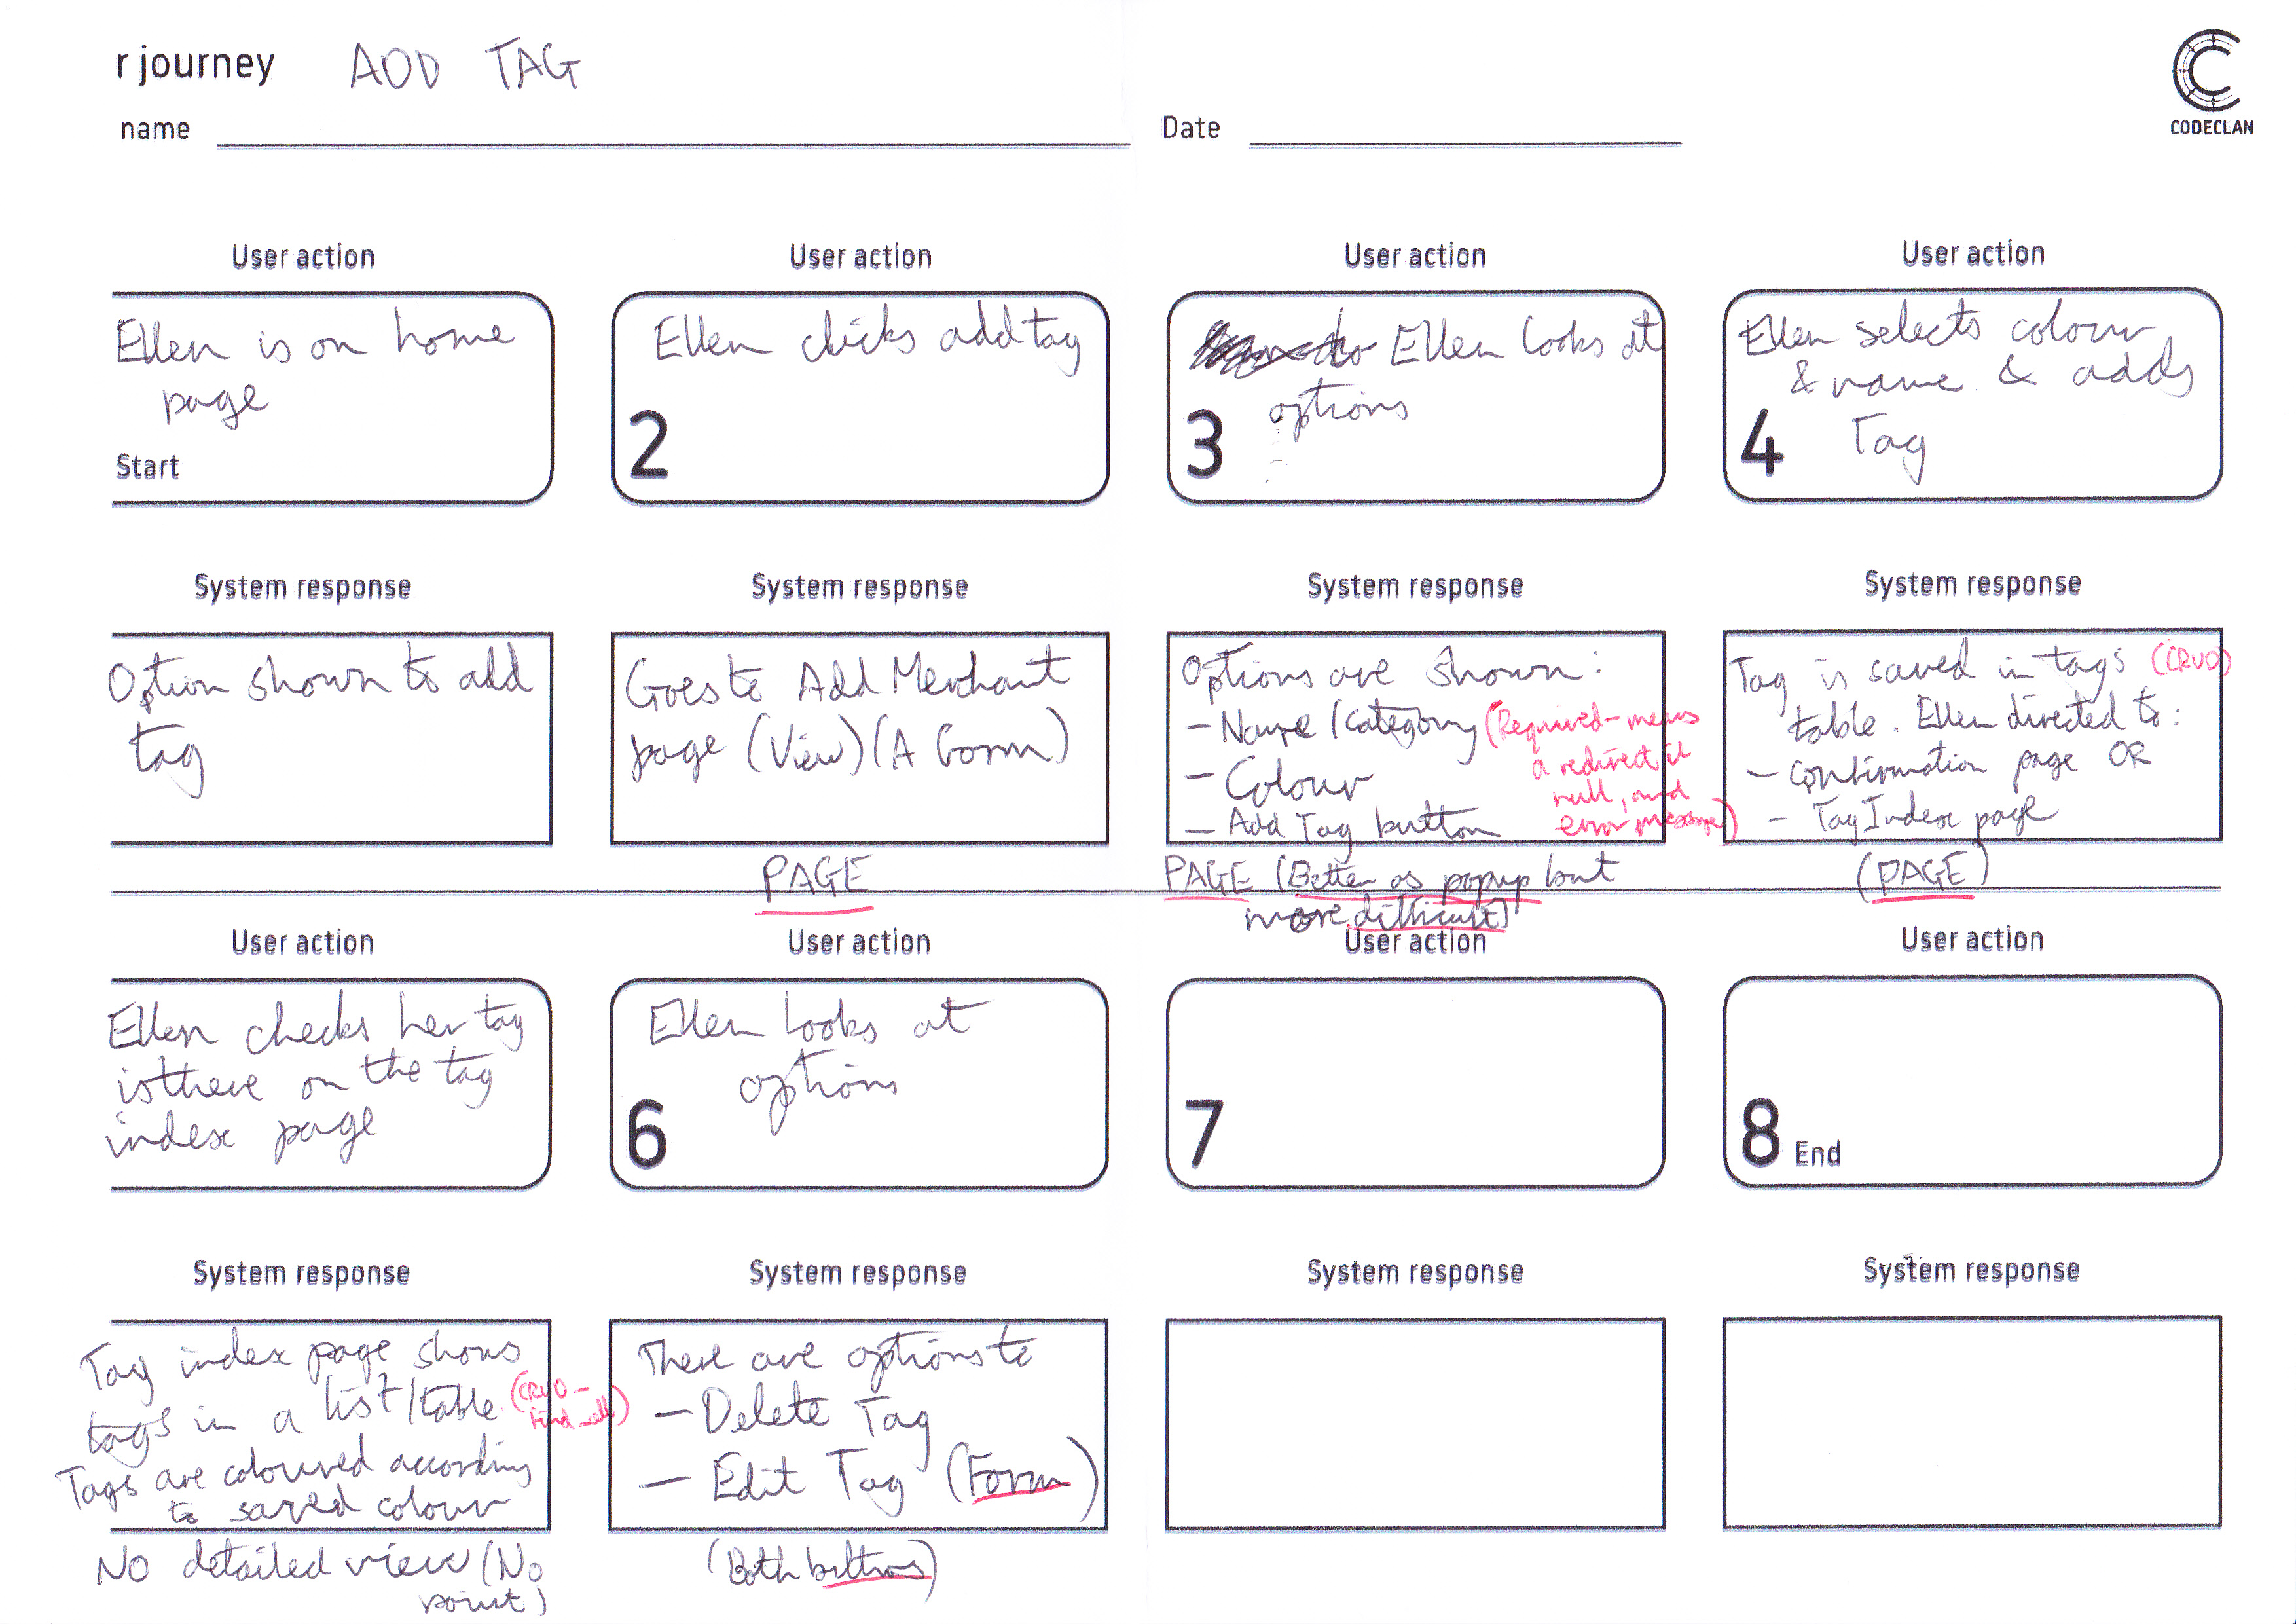 r journey ADD TAG
name
Date
CODECLAN
User action
Ellen is on home
page
Start
User action
Ellen clicks add tag
2
User action
Ellen looks at
options
3
User action
Ellen selects colour
& name & adds
Tag
4
System response
Option shown to add
tag
System response
Goes to Add Merchant
page (View) (A Form)
PAGE
System response
Options are shown:
- Name / Category (Required - means
a redirect if
null, and
error message)
- Colour
- Add Tag button
PAGE (Better as popup but
more difficult)
System response
Tag is saved in tags (CRUD)
table. Ellen directed to:
- Confirmation page OR
- Tag Index page
(PAGE)
User action
Ellen checks her tag
is there on the tag
index page
User action
Ellen looks at
options
6
User action
7
User action
8 End
System response
Tag index page shows
tags in a list / table. (CRUD -
find_all)
Tags are coloured according
to saved colour
No detailed view (No
point)
System response
There are options to
- Delete Tag
- Edit Tag (Form)
(Both buttons)
System response
System response